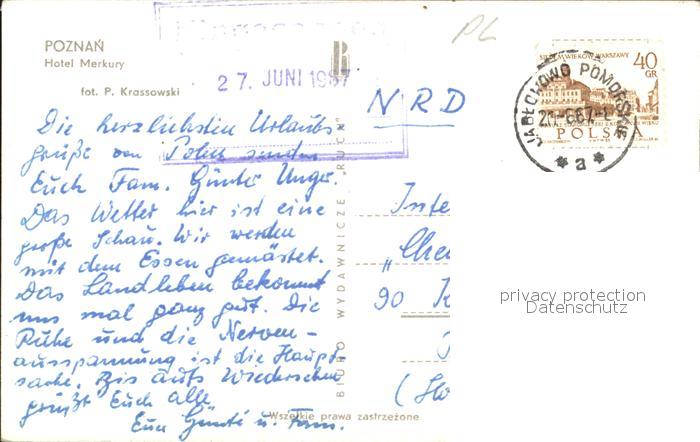 POZNAŃ
Hotel Merkury
fot. P. Krassowski
27. JUNI 1967
PL
NRD
SIEDEM WIEKÓW WARSZAWY
40
GR
POLSKA
JABŁCHOWO POMORSKIE
a
Die herzlichsten Urlaubs-
grüße von Polen senden
Euch Fam. Günter Unger.
Das Wetter hier ist eine
große Schau. Wir werden
mit dem Essen gemästet.
Das Landleben bekommt
uns mal ganz gut. Die
Ruhe und die Nerven-
ausspannung ist die Haupt-
sache. Bis aufs Wiedersehen
grüßt Euch alle
Eure Günter u. Fam.
BIURO WYDAWNICZE „RUCH"
Inte
„Che
90 K
(Ho
privacy protection
Datenschutz
Wszelkie prawa zastrzeżone